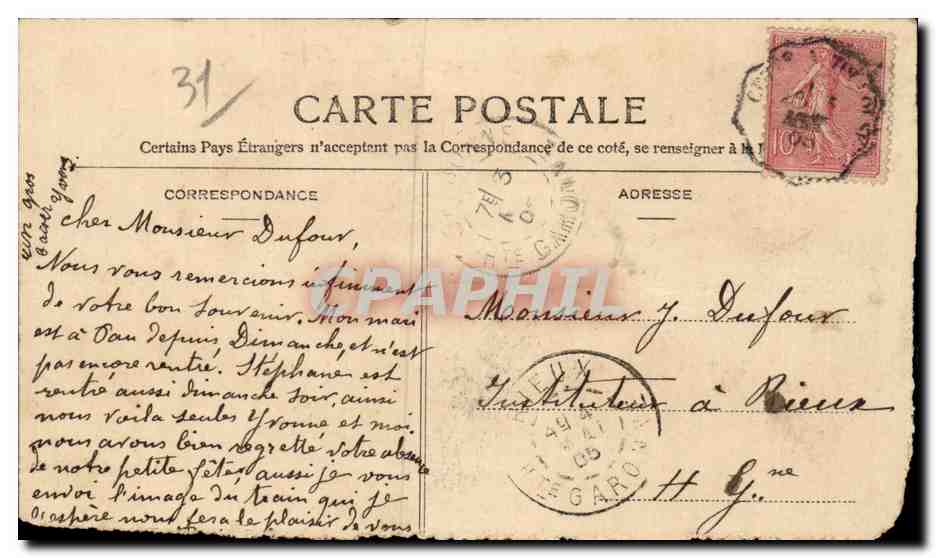 31
CARTE POSTALE
Certains Pays Étrangers n'acceptent pas la Correspondance de ce coté, se renseigner à la
CORRESPONDANCE
un gros
baiser
Cher Monsieur Dufour,
Nous vous remercions infiniment
de votre bon souvenir. Mon mari
est à Pau depuis Dimanche, et n'est
pas encore rentré. Stéphane est
rentré aussi dimanche soir, ainsi
nous voila seules Yvonne et moi.
nous avons bien regretté votre absence
de notre petite fête, aussi je vous
envoi l'image du train qui je
espère nous fera le plaisir de vous
ADRESSE
Monsieur J. Dufour
Instituteur à Rieux
H Gne
10
RIEUX
Hte GARONNE
05
CPAPHIL